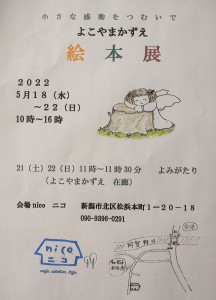 小さな感動をつむいで
よこやまかずえ
絵本展
2022
5月18(水)
～22(日)
10時～16時
21(土)22(日)11時～11時30分 よみがたり
(よこやまかずえ 在廊)
会場nico ニコ 新潟市北区松浜本町1－20－18
090-9396-0291
nico
ニコ
cafe.atelier.life.
阿賀野川